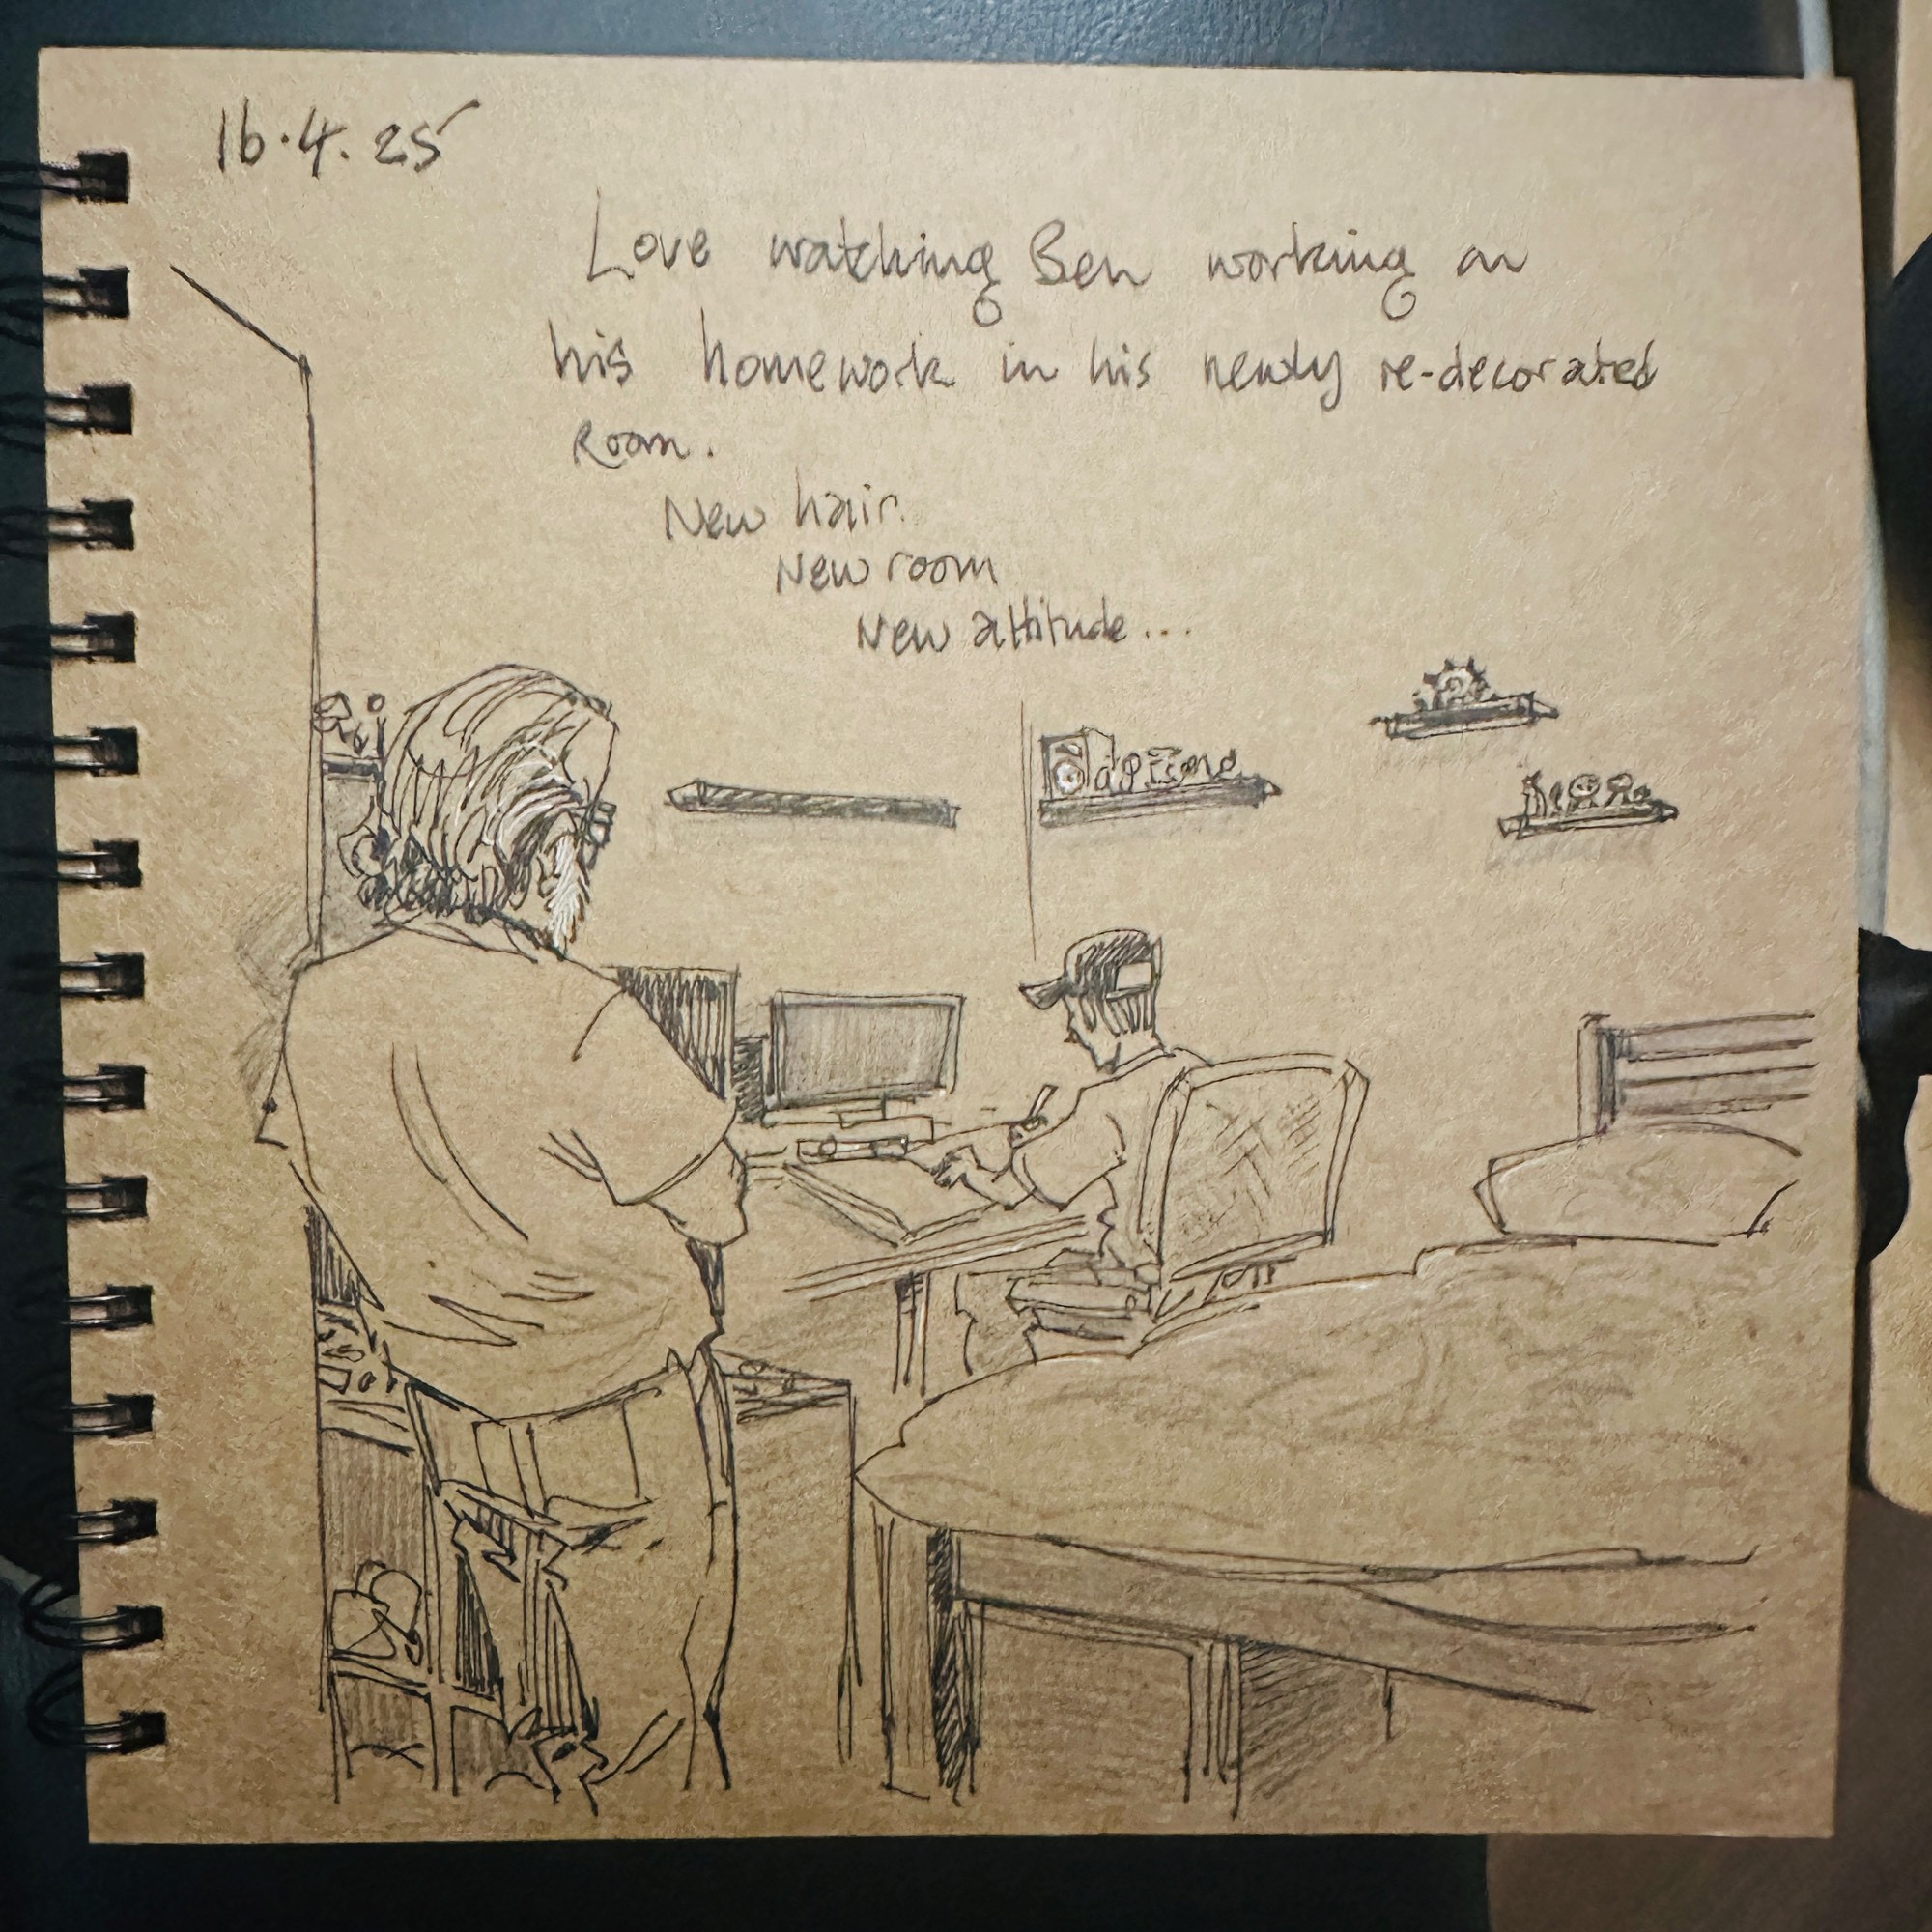 16.4.25
Love watching Ben working on
his homework in his newly re-decorated
Room.
New hair.
New room
New attitude...